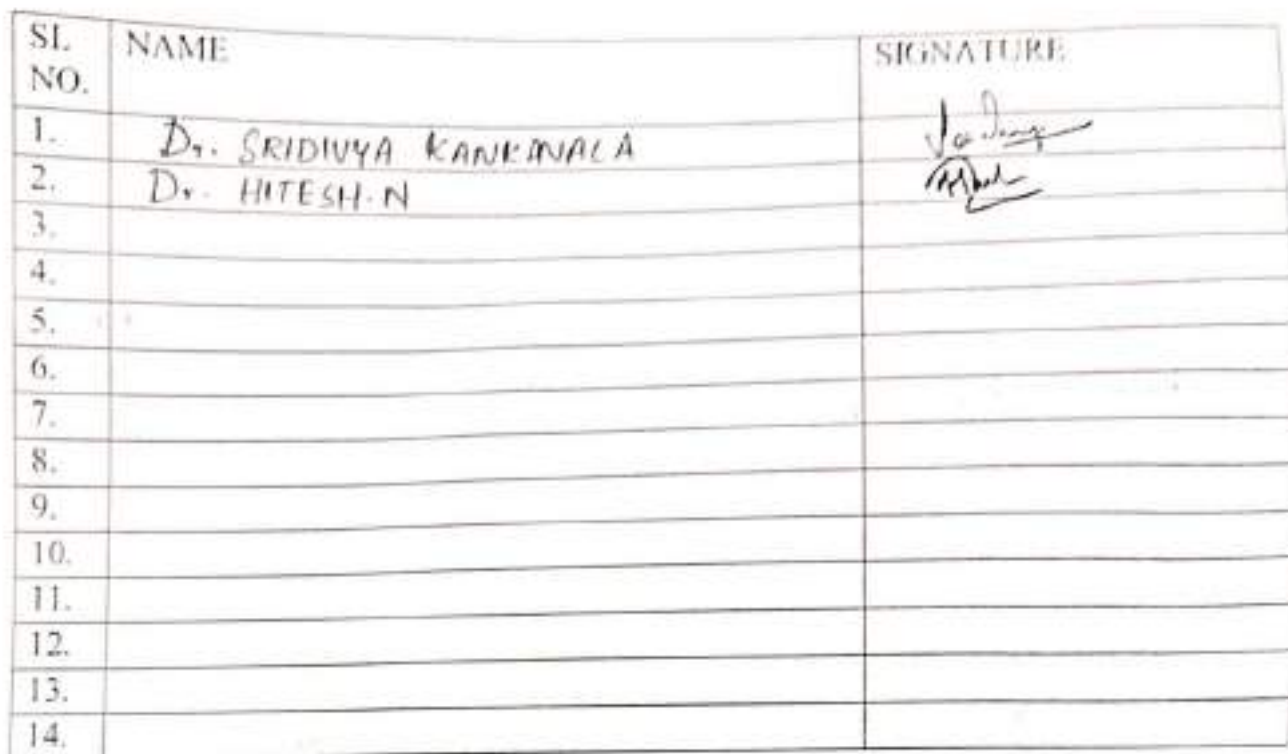 SL NO. NAME SIGNATURE
1. Dr. SRIDIVYA
2. Dr. HITESH.N
3.
4.
5.
6.
7.
8.
9.
10.
11.
12.
13.
14.